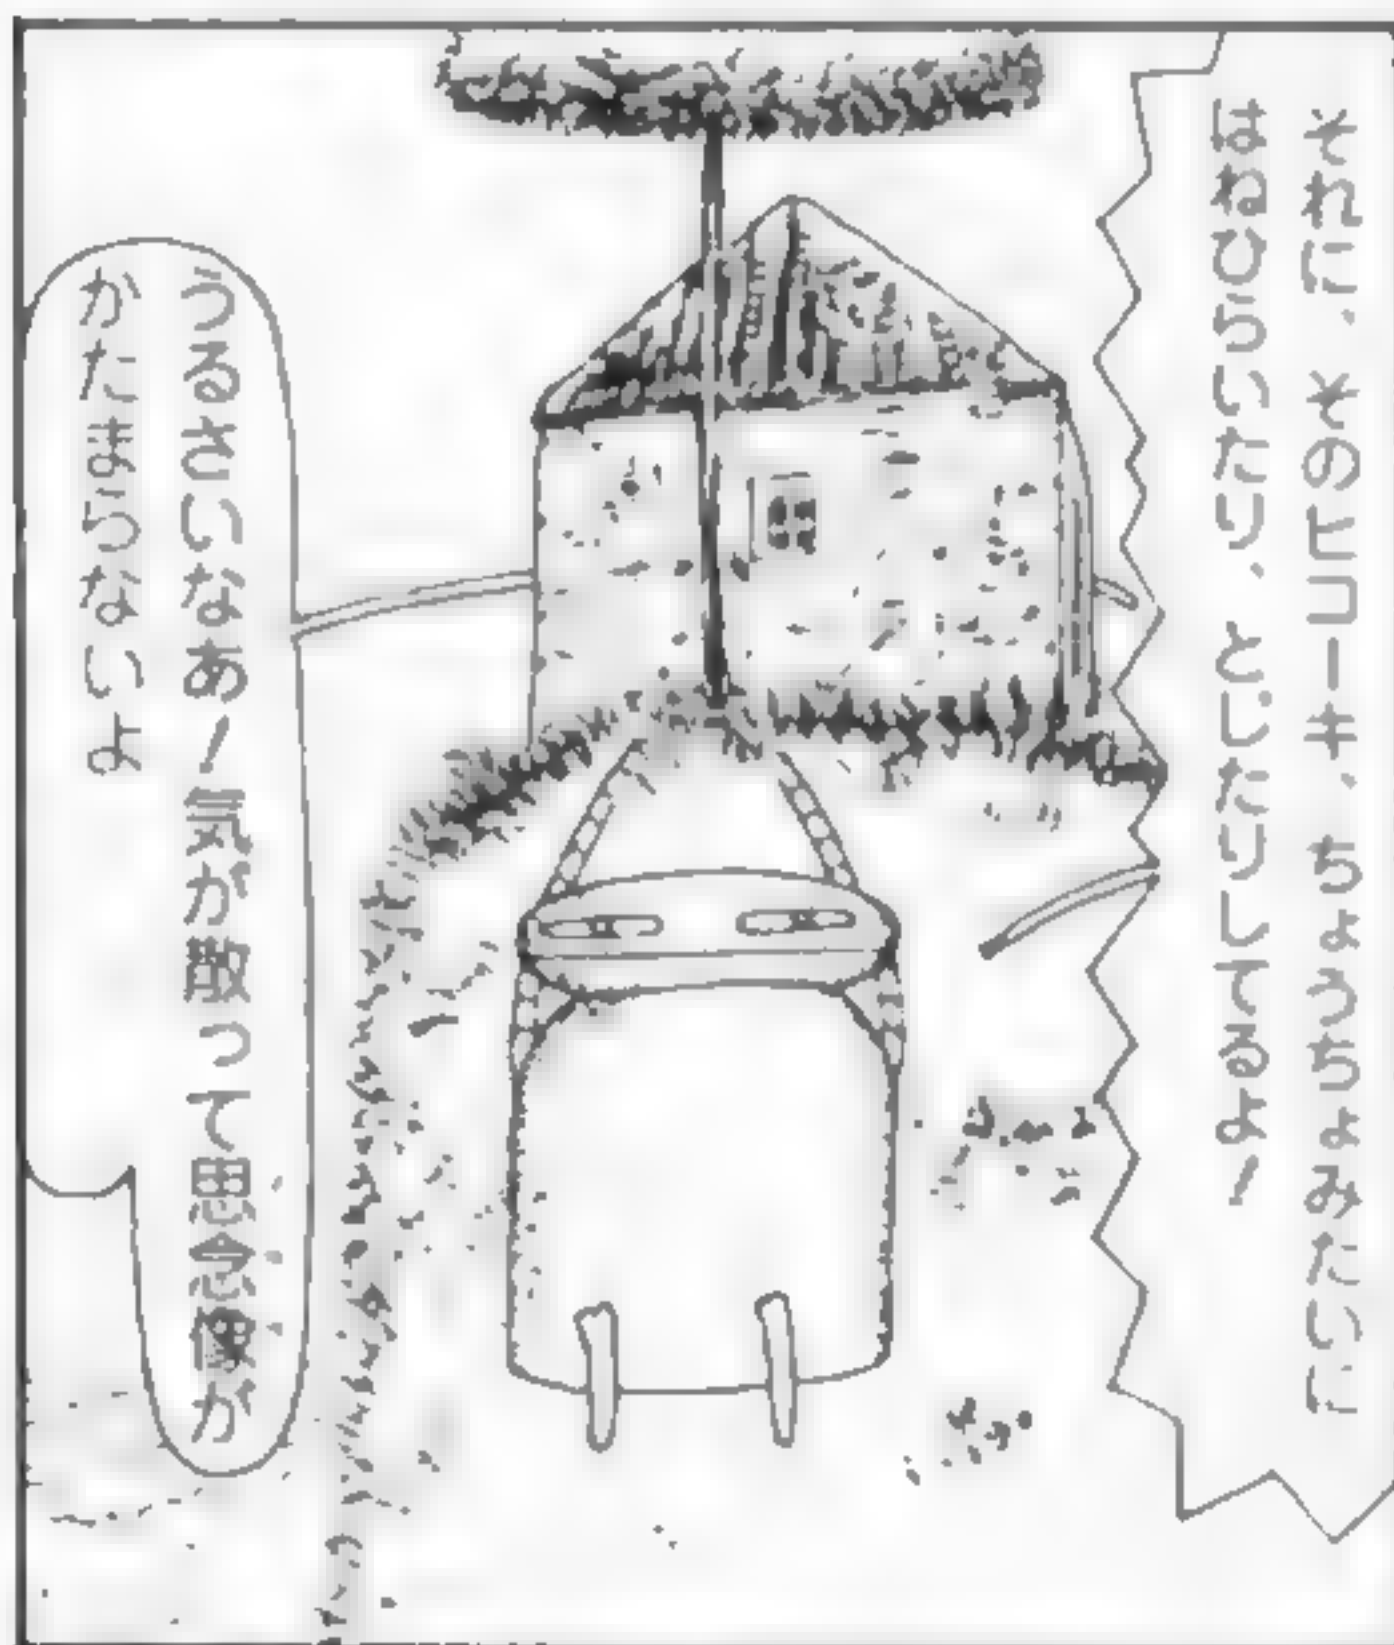 それに、そのヒコーキ、ちょうちょみたいに
はねひらいたり、とじたりしてるよ！
うるさいなあ！気が散って思念像が
かたまらないよ